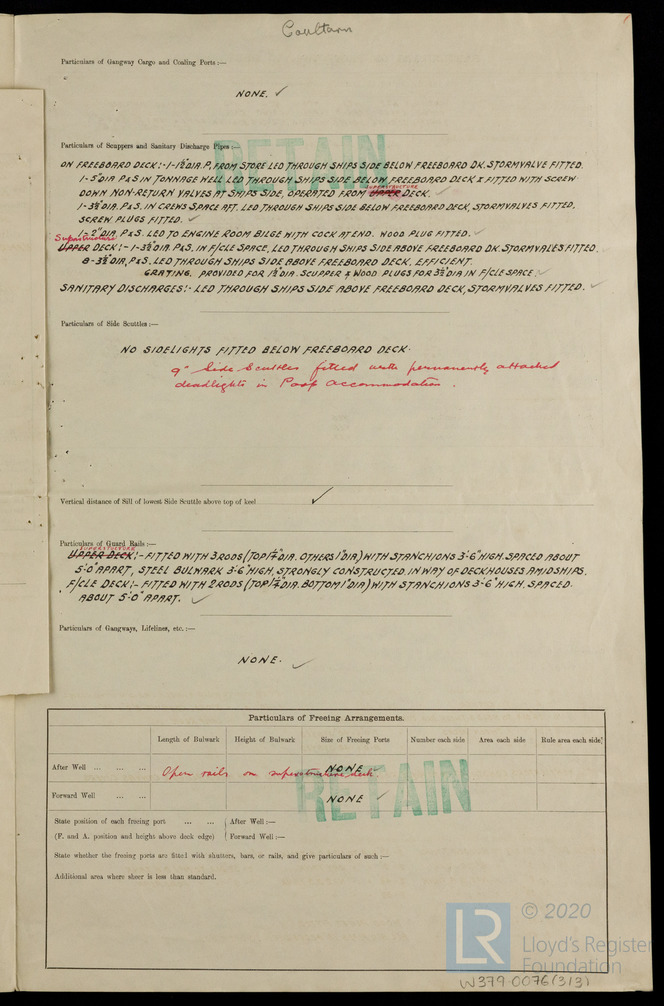 Coultarn
Particulars of Gangway Cargo and Coaling Ports :—
NONE. ✓
RETAIN
Particulars of Scuppers and Sanitary Discharge Pipes :—
ON FREEBOARD DECK:- 1-1½"DIA. P, FROM STORE LED THROUGH SHIPS SIDE BELOW FREEBOARD DK. STORMVALVE FITTED.
1-5"DIA P&S IN TONNAGE WELL LED THROUGH SHIPS SIDE BELOW FREEBOARD DECK & FITTED WITH SCREW
SUPERSTRUCTURE
DOWN NON-RETURN VALVES AT SHIPS SIDE, OPERATED FROM UPPER DECK. ✓
1-3½"DIA, P&S. IN CREWS SPACE AFT. LED THROUGH SHIPS SIDE BELOW FREEBOARD DECK, STORMVALVES FITTED,
SCREW PLUGS FITTED. ✓
1-2"DIA. P&S. LED TO ENGINE ROOM BILGE WITH COCK AT END. WOOD PLUG FITTED. ✓
Superstructure
UPPER DECK:- 1-3½"DIA P&S, IN F/CLE SPACE, LED THROUGH SHIPS SIDE ABOVE FREEBOARD DK. STORMVALVES FITTED.
8-3½"DIA, P&S. LED THROUGH SHIPS SIDE ABOVE FREEBOARD DECK. EFFICIENT.
GRATING. PROVIDED FOR ½"DIA. SCUPPER & WOOD PLUGS FOR 3½"DIA IN F/CLE SPACE. ✓
SANITARY DISCHARGES:- LED THROUGH SHIPS SIDE ABOVE FREEBOARD DECK, STORMVALVES FITTED. ✓
Particulars of Side Scuttles :—
NO SIDELIGHTS FITTED BELOW FREEBOARD DECK.
9" Side Scuttles fitted with permanently attached
deadlights in Poop accommodation.
Vertical distance of Sill of lowest Side Scuttle above top of keel ✓
Particulars of Guard Rails :—
SUPERSTRUCTURE
UPPER DECK:- FITTED WITH 3 RODS (TOP 1¼"DIA. OTHERS 1"DIA) WITH STANCHIONS 3'-6" HIGH. SPACED ABOUT
5'-0" APART, STEEL BULWARK 3'-6" HIGH, STRONGLY CONSTRUCTED, IN WAY OF DECKHOUSES AMIDSHIPS.
F/CLE DECK:- FITTED WITH 2 RODS (TOP 1¼"DIA. BOTTOM 1"DIA) WITH STANCHIONS 3'-6" HIGH, SPACED
ABOUT 5'-0" APART. ✓
Particulars of Gangways, Lifelines, etc. :—
NONE. ✓
Particulars of Freeing Arrangements.
Length of Bulwark Height of Bulwark Size of Freeing Ports Number each side Area each side Rule area each side
After Well ... ... ... Open rails on superstructure deck NONE
Forward Well ... ... NONE ✓
RETAIN
State position of each freeing port ... ... { After Well :—
(F. and A. position and height above deck edge) { Forward Well :—
State whether the freeing ports are fitted with shutters, bars, or rails, and give particulars of such :—
Additional area where sheer is less than standard.
LR
© 2020
Lloyd's Register
Foundation
W379-0076(3/3)